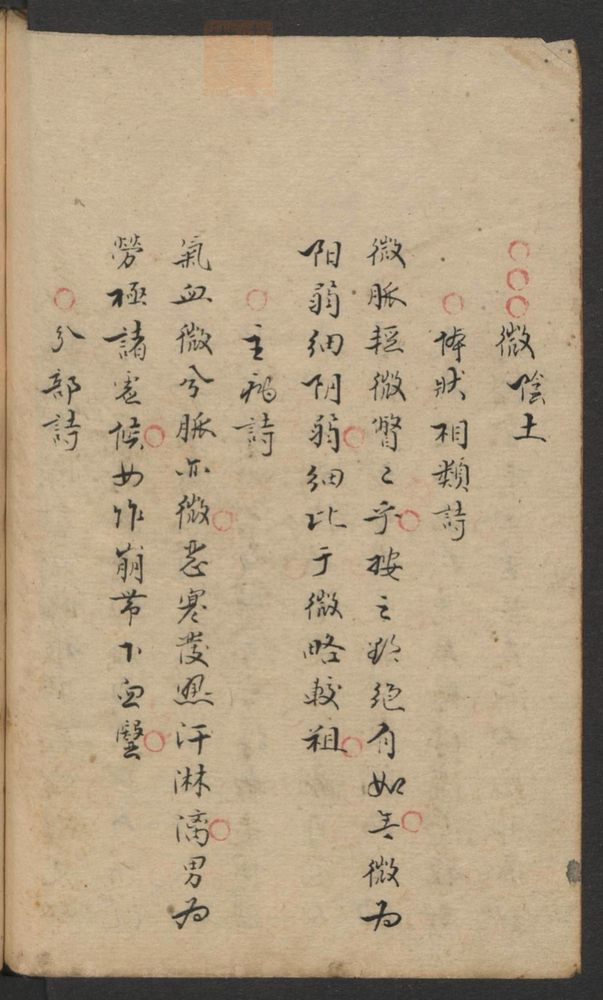 微陰土
体狀相類詩
微脈輕微瞥々乎按之欲絕有如無微为
阳弱細阴弱細比于微略較粗
主病詩
氣血微兮脈亦微恶寒發热汗淋漓男为
勞極諸虚候女作崩带下血醫
分部詩